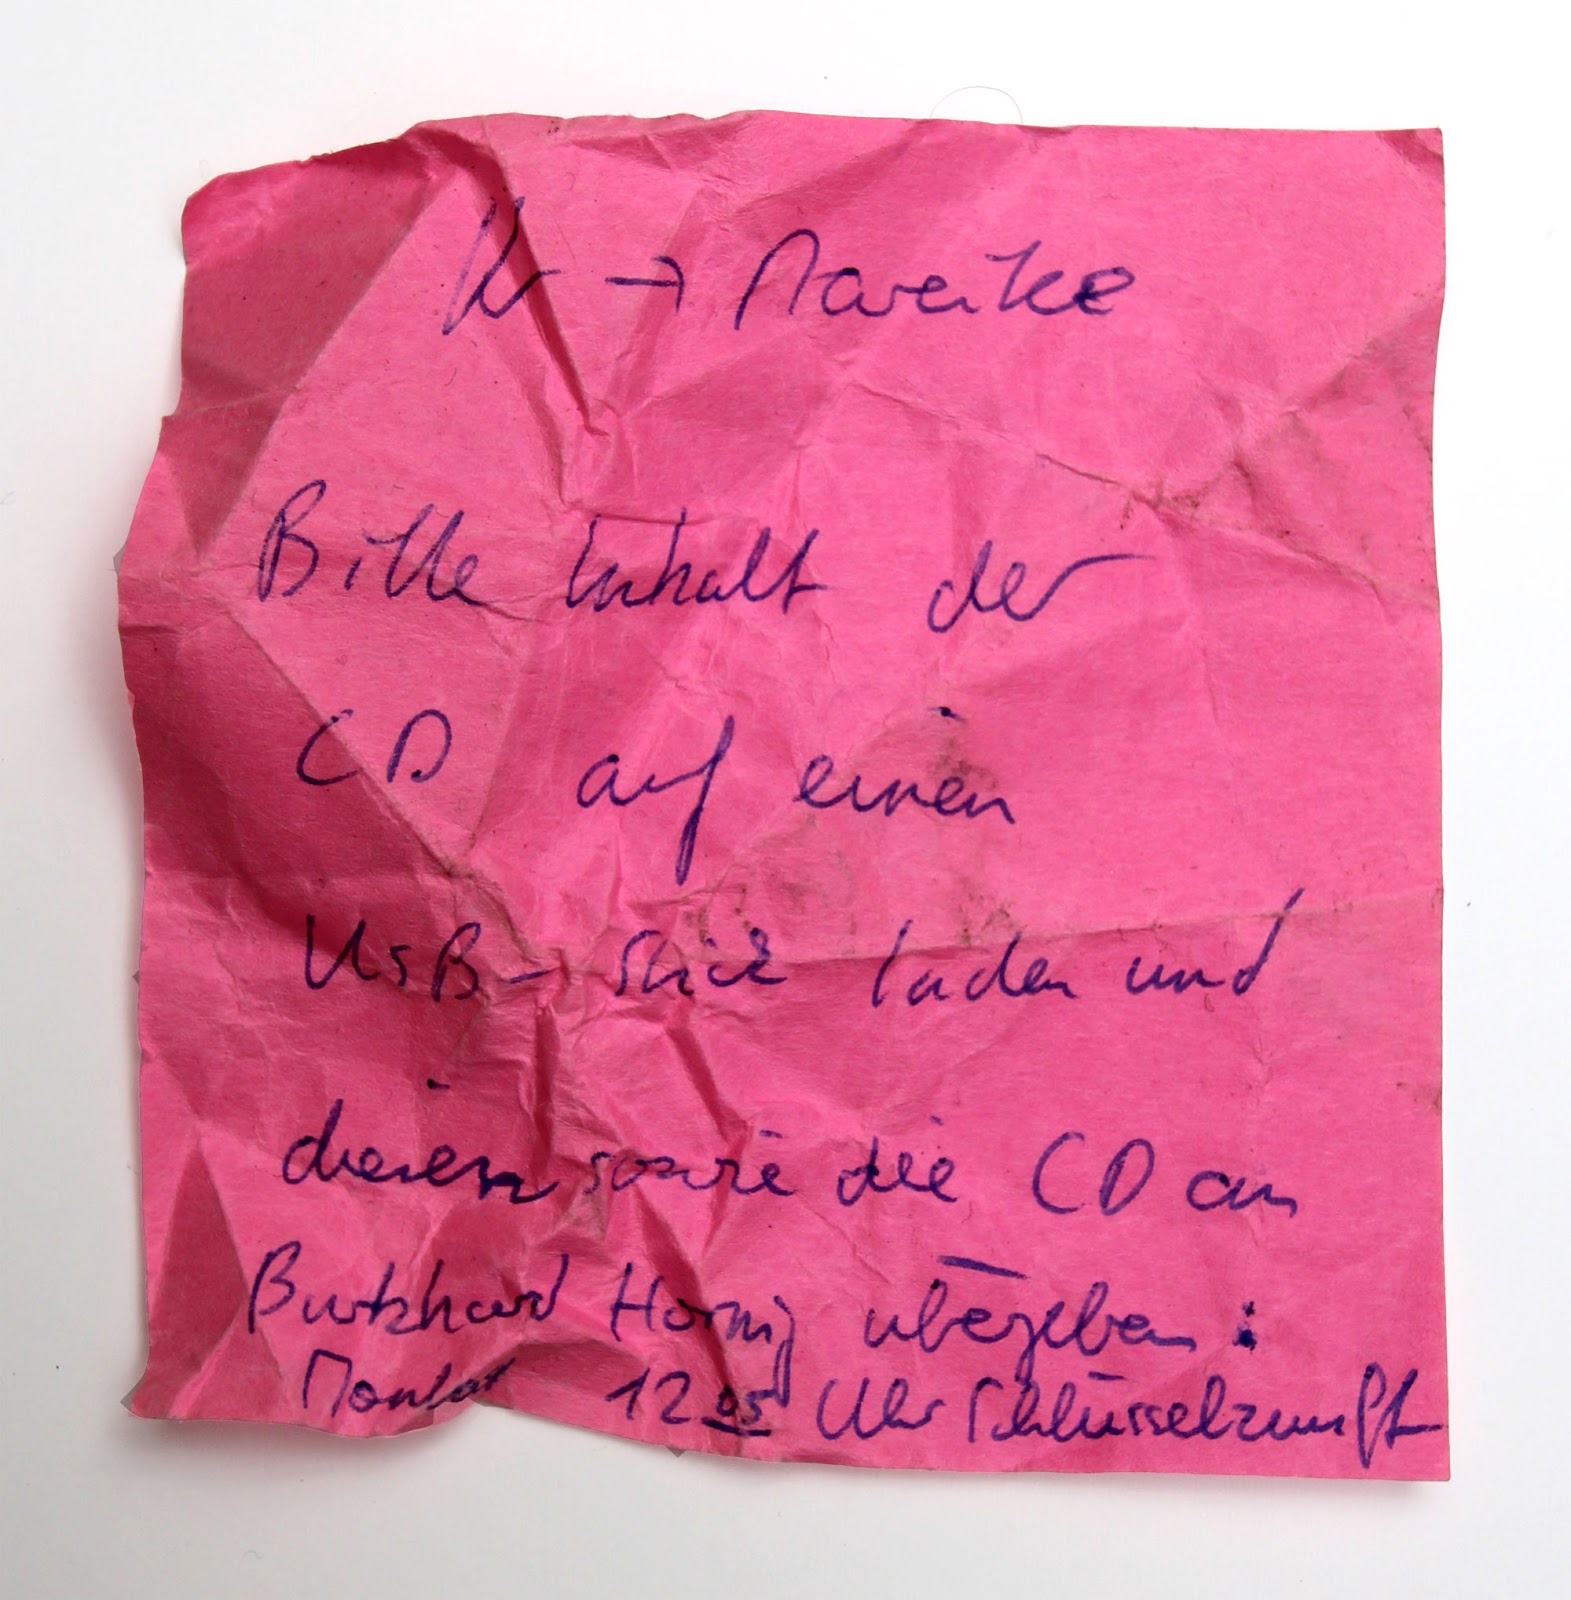 → Mareike
Bitte Inhalt der
CD auf einen
USB-Stick laden und
diesen sowie die CD an
Burkhard Hornig übergeben:
12 05 Uhr Schlüsselzunft